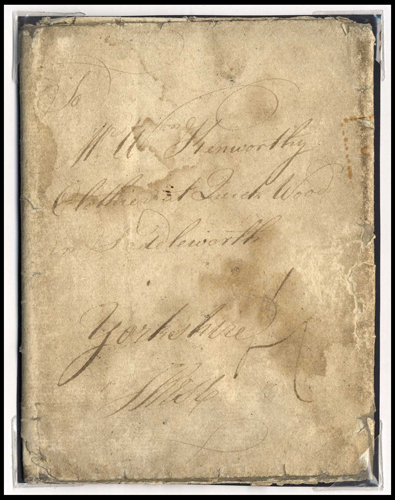 To
Mr Kenworthy
Clothier at Quick Wood
in Saddleworth
Yorkshire